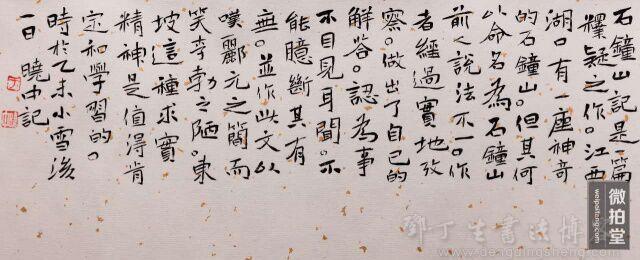 石鐘山記是一篇
釋疑之作。江西
湖口有一座神奇
的石鐘山。但其何
以命名為石鐘山
前人說法不一。作
者經過實地攷
察。做出了自己的
解答。認為事
不目見耳聞。不
能臆斷其有
無。並作此文以
嘆酈元之簡而
笑李勃之陋。東
坡這種求實
精神是值得肯
定和學習的。
時於乙未小雪後
一日 曉中記
微拍堂
weipaitang.com
鄧丁生書法博